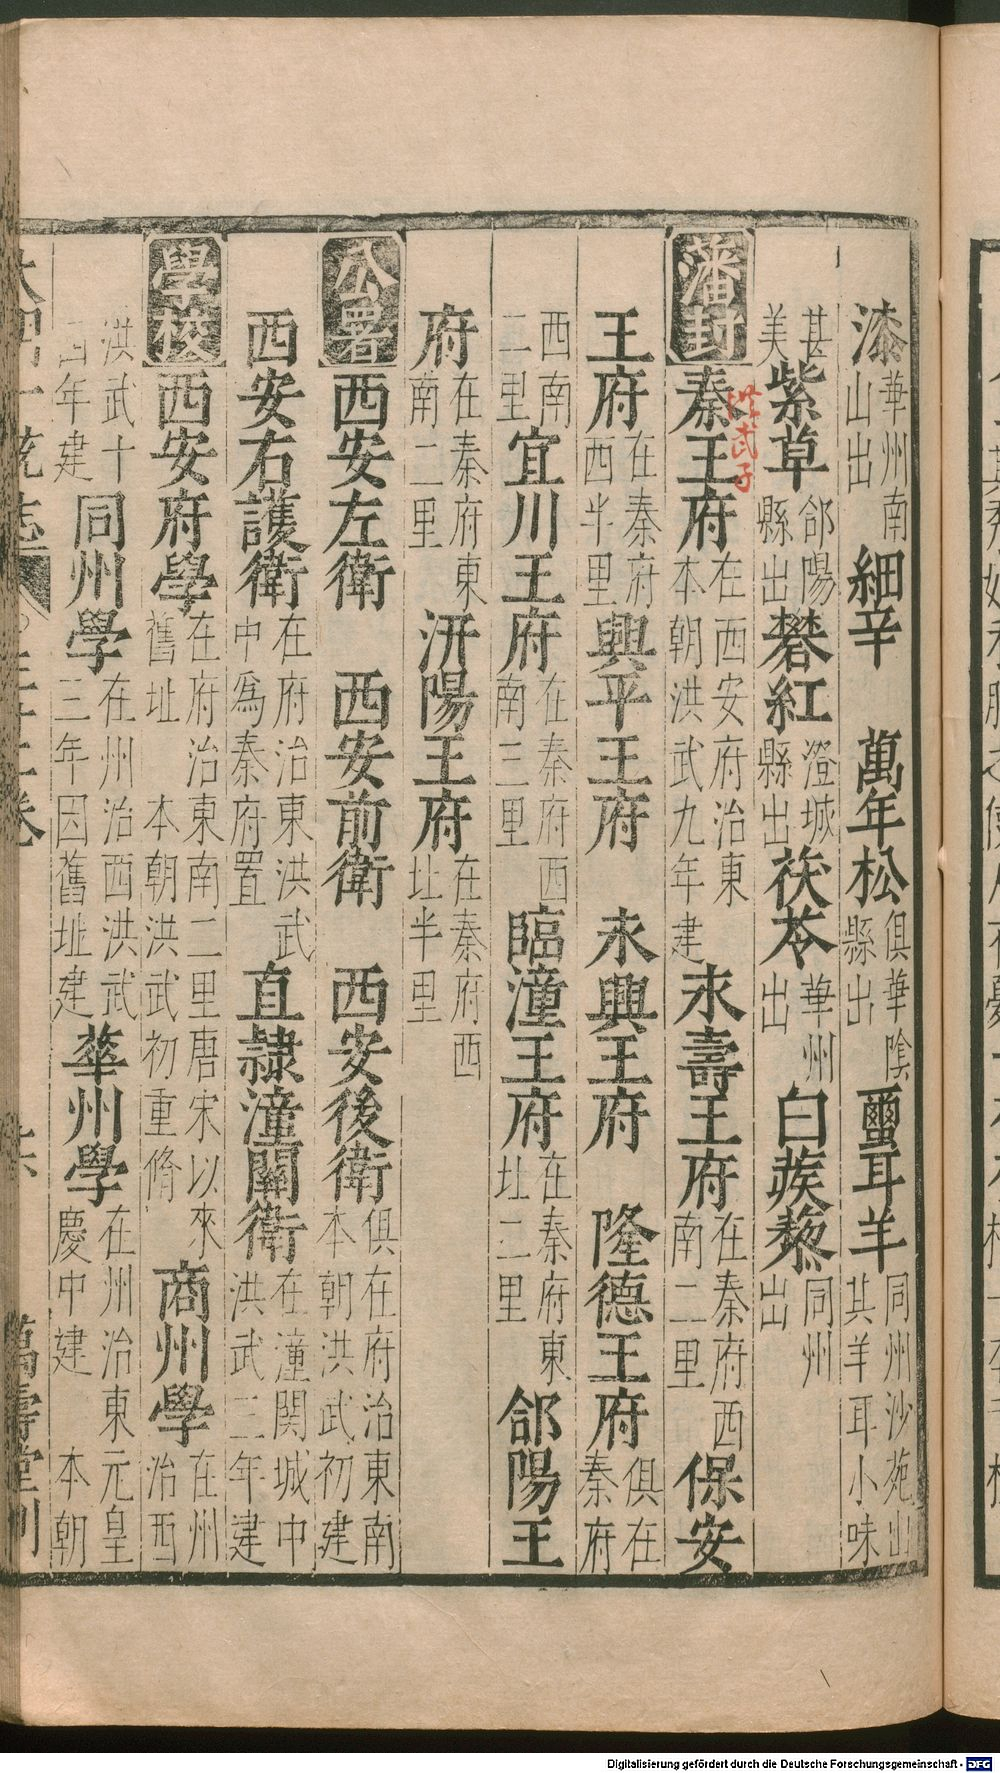 漆華州南山出 細辛 萬年松俱華陰縣出 𧖟耳羊同州沙苑出其羊耳小味
甚美 紫草郃陽縣出 礬紅澄城縣出 茯苓華州出 白蒺藜同州出
藩封 秦王府在西安府治東本朝洪武九年建 永壽王府在秦府西南二里 保安
洪武子
王府在秦府西半里 興平王府 永興王府 隆德王府俱在秦府
西南二里 宜川王府在秦府西南三里 臨潼王府在秦府東址二里 郃陽王
府在秦府東南二里 汧陽王府在秦府西址半里
公署 西安左衛 西安前衛 西安後衛俱在府治東南本朝洪武初建
西安右護衛在府治東洪武中為秦府置 直隸潼關衛在潼関城中洪武三年建
學校 西安府學在府治東南二里唐宋以來舊址 本朝洪武初重脩 商州學在州治西
洪武十四年建 同州學在州治西洪武三年因舊址建 華州學在州治東元皇慶中建 本朝
大明一統志 三十二卷 萬壽堂刊
Digitalisierung gefördert durch die Deutsche Forschungsgemeinschaft - DFG